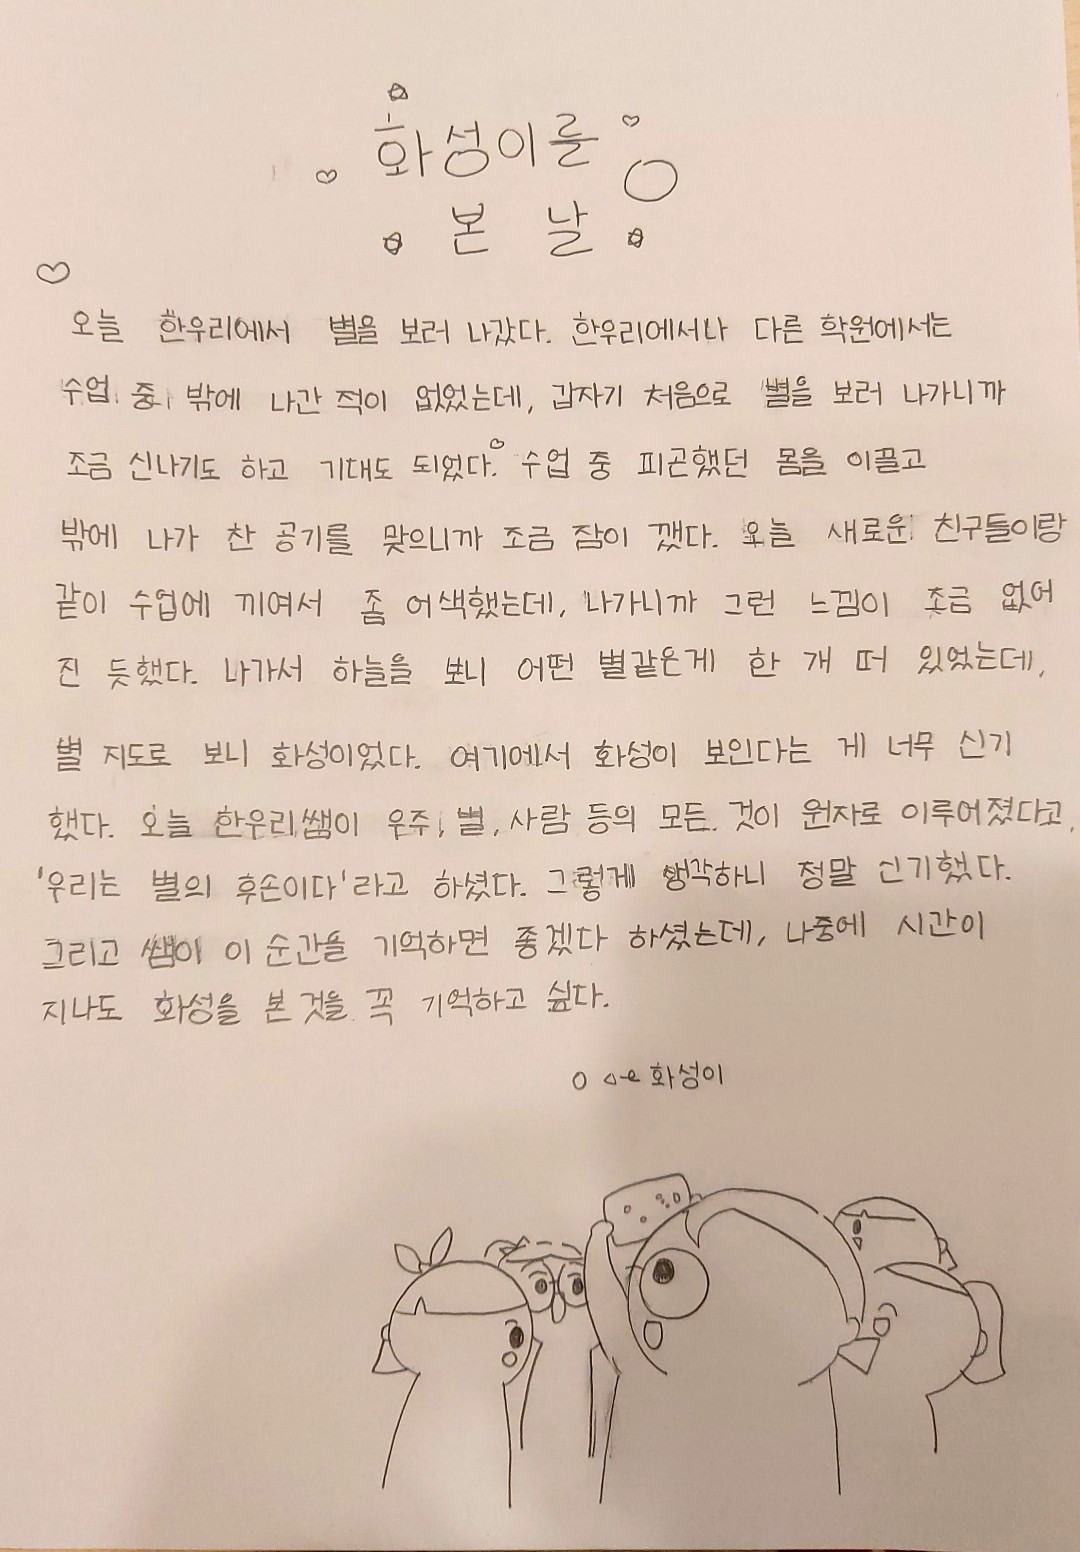 화성이를
본 날
오늘 한우리에서 별을 보러 나갔다. 한우리에서나 다른 학원에서는
수업 중 밖에 나간 적이 없었는데, 갑자기 처음으로 별을 보러 나가니까
조금 신나기도 하고 기대도 되었다. 수업 중 피곤했던 몸을 이끌고
밖에 나가 찬 공기를 맞으니까 조금 잠이 깼다. 오늘 새로운 친구들이랑
같이 수업에 끼여서 좀 어색했는데, 나가니까 그런 느낌이 조금 없어
진 듯했다. 나가서 하늘을 보니 어떤 별같은게 한 개 떠 있었는데,
별 지도로 보니 화성이었다. 여기에서 화성이 보인다는 게 너무 신기
했다. 오늘 한우리쌤이 우주, 별, 사람 등의 모든 것이 원자로 이루어졌다고,
'우리는 별의 후손이다'라고 하셨다. 그렇게 생각하니 정말 신기했다.
그리고 쌤이 이 순간을 기억하면 좋겠다 하셨는데, 나중에 시간이
지나도 화성을 본 것을 꼭 기억하고 싶다.
화성이